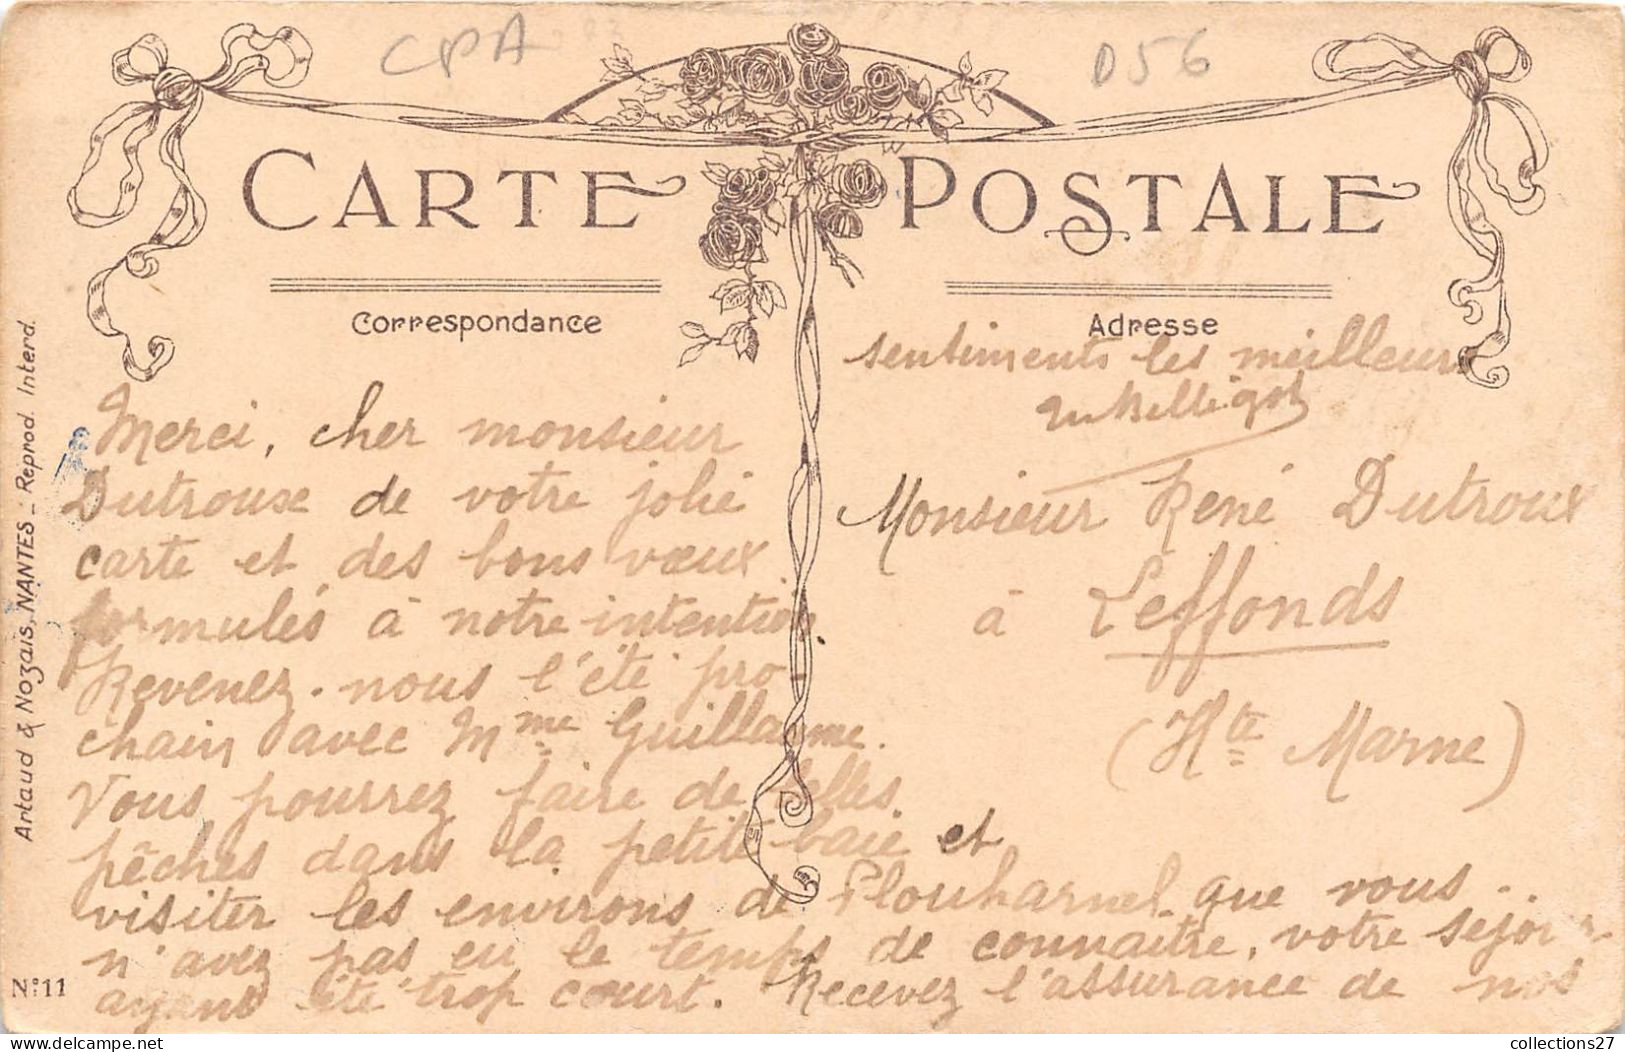 CPA
D56
CARTE POSTALE
Correspondance
Adresse
Merci, cher monsieur
Dutrouse de votre jolie
carte et des bons vœux
formulés à notre intention.
Revenez-nous l'été pro-
chain avec Mme Guillaume.
Vous pourrez faire de belles
pêches dans la petite baie et
visiter les environs de Plouharnel que vous
n'avez pas eu le temps de connaître, votre séjour
ayant été trop court. Recevez l'assurance de nos
sentiments les meilleurs
Monsieur René Dutroux
à Leffonds
(Hte Marne)
Artaud & Nozais, NANTES - Reprod. Interd.
N° 11
collections27